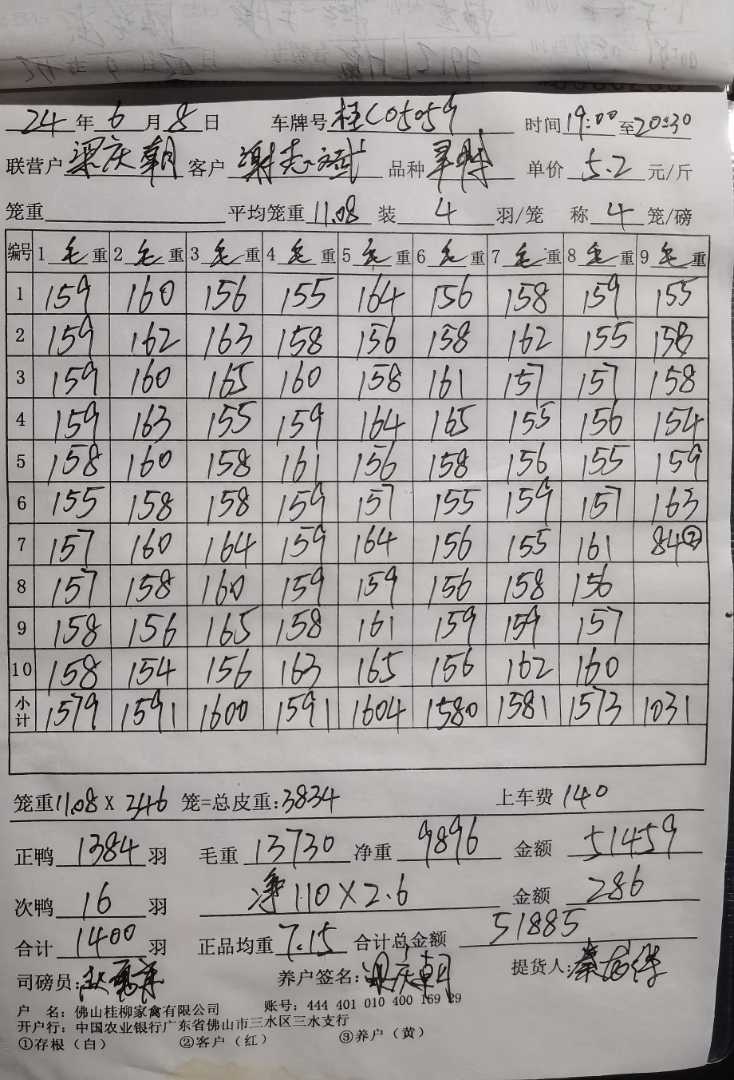 24 年 6 月 8 日 车牌号 桂C05059 时间 19:00 至 20:30
联营户 梁庆朝 客户 谢志斌 品种 单价 5.2 元/斤
笼重 平均笼重 11.08 装 4 羽/笼 称 4 笼/磅
编号 1 毛 重 2 毛 重 3 毛 重 4 毛 重 5 毛 重 6 毛 重 7 毛 重 8 毛 重 9 毛 重
1 159 160 156 155 164 156 158 159 155
2 159 162 163 158 156 158 162 155 158
3 159 160 165 160 158 161 157 157 158
4 159 163 155 159 164 165 155 156 154
5 158 160 158 161 156 158 156 155 159
6 155 158 158 159 157 155 159 157 163
7 157 160 164 159 164 156 155 161 84②
8 157 158 160 159 159 156 158 156
9 158 156 165 158 161 159 159 157
10 158 154 156 163 165 156 162 160
小计 1579 1591 1600 1591 1604 1580 1581 1573 1031
笼重 11.08 X 346 笼=总皮重: 3834 上车费 140
正鸭 1384 羽 毛重 13730 净重 9896 金额 51459
次鸭 16 羽 净110×2.6 金额 286
合计 1400 羽 正品均重 7.15 合计总金额 51885
司磅员: 养户签名: 梁庆朝 提货人:
户 名: 佛山桂柳家禽有限公司 账号: 444 401 010 400 169 29
开户行: 中国农业银行广东省佛山市三水区三水支行
①存根(白) ②客户(红) ③养户(黄)